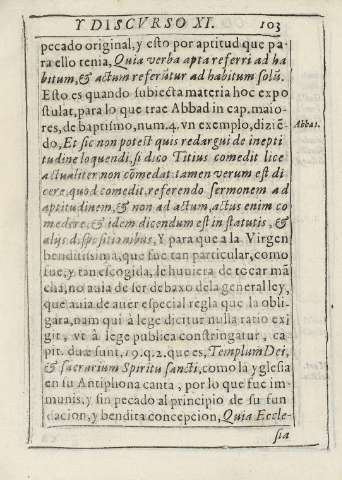 Y DISCVRSO XI. 103
pecado original, y esto por aptitud que pa-
ra ello tenia, Quia verba apta referri ad ha
bitum, & actum referūtur ad habitum solū.
Esto es quando subiecta materia hoc expo
stulat, para lo que trae Abbad in cap. maio-
res, de baptismo, num. 4. vn exemplo, diziē-
Abbat.
do, Et sic non potest quis redargui de inepti
tudine loquendi, si dico Titius comedit lice
actualiter non cōmedat: tamen verum est di
cere, quod comedit, referendo sermonem ad
aptitudinem, & non ad actum, actus enim co
medere, & idem dicendum est in statutis, &
alijs dispositionibus, Y para que a la Virgen
benditissima, que fue tan particular, como
fue, y tan escogida, le huuiera de tocar mā
cha, no auia de ser debaxo dela general ley,
que auia de auer especial regla que la obli-
gàra, nam qui à lege dicitur nulla ratio exi
git, vt à lege publica constringatur, ca-
pit. duæ sunt, 19. q. 2. que es, Templum Dei,
& sacrarium Spiritu sancti, como la yglesia
en su Antiphona canta, por lo que fue im-
munis, y sin pecado al principio de su fun
dacion, y bendita concepcion, Quia Eccle-
sia